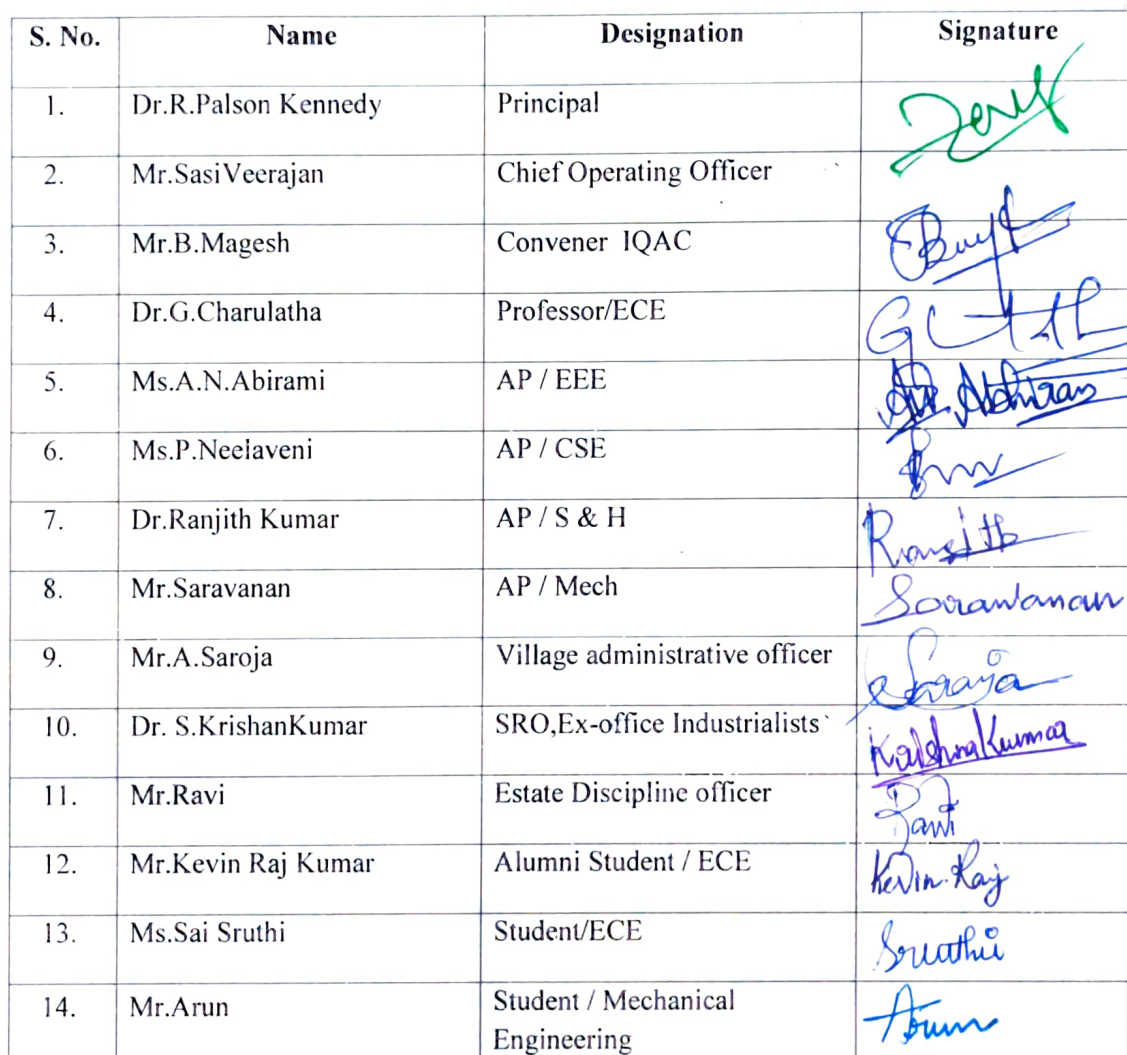 S. No. Name Designation Signature
1. Dr.R.Palson Kennedy Principal
2. Mr.SasiVeerajan Chief Operating Officer
3. Mr.B.Magesh Convener IQAC
4. Dr.G.Charulatha Professor/ECE
5. Ms.A.N.Abirami AP / EEE
6. Ms.P.Neelaveni AP / CSE
7. Dr.Ranjith Kumar AP / S & H Ranjith
8. Mr.Saravanan AP / Mech Saravanan
9. Mr.A.Saroja Village administrative officer Saroja
10. Dr. S.KrishanKumar SRO,Ex-office Industrialists KrishnaKumar
11. Mr.Ravi Estate Discipline officer Ravi
12. Mr.Kevin Raj Kumar Alumni Student / ECE Kevin Raj
13. Ms.Sai Sruthi Student/ECE Sruthi
14. Mr.Arun Student / Mechanical Arun
Engineering